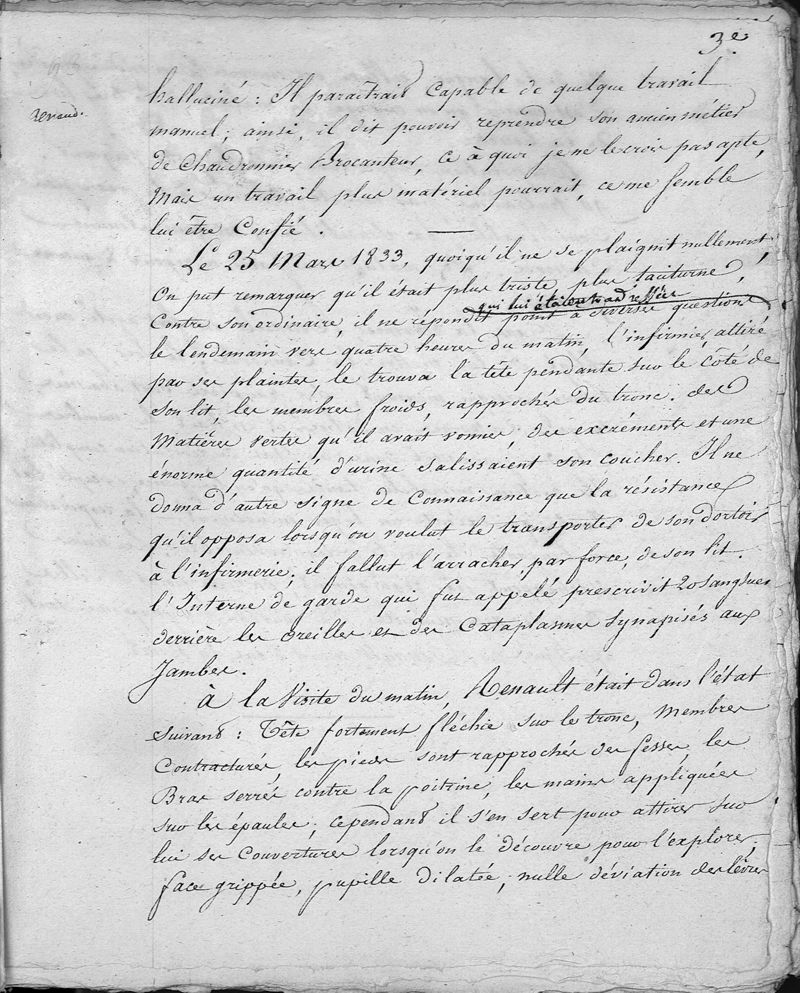 3e.
halluciné : Il paraîtrait Capable de quelque travail
manuel ; ainsi, il dit pouvoir reprendre son ancien métier
de Chaudronnier Brocanteur, ce à quoi je ne le crois pas apte,
Mais un travail plus matériel pourrait, ce me semble
lui être Confié.
Le 25 Mars 1833, quoiqu'il ne se plaignit nullement,
On put remarquer qu'il était plus triste, plus taciturne,
qui lui étaient adressées
Contre son ordinaire, il ne répondit point à diverses questions
le lendemain vers quatre heures du matin, l'infirmier attiré
par ses plaintes, le trouva la tête pendante sur le côté de
son lit, les membres froids, rapprochés du tronc. des
Matières vertes qu'il avait vomies, des excréments et une
énorme quantité d'urine salissaient son coucher. Il ne
donna d'autre signe de Connaissance que la résistance
qu'il opposa lorsqu'on voulut le transporter de son dortoir
à l'infirmerie. il fallut l'arracher par force, de son lit.
l'Interne de garde qui fut appelé prescrivit 20 sangsues
derrière les oreilles et des Cataplasmes synapisés aux
Jambes.
à la Visite du matin, Renault était dans l'état
suivant : Tête fortement fléchie sur le tronc, Membres
Contracturés, les pieds sont rapprochés des fesses, les
Bras serrés contre la poitrine, les mains appliquées
sur les épaules ; cependant il s'en sert pour attirer sur
lui ses Couvertures lorsqu'on le découvre pour l'explorer ;
face grippée, pupille dilatée, nulle déviation des lèvres